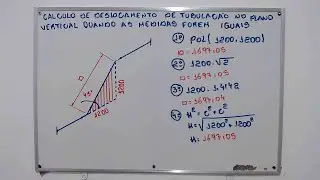 CALCULO DE DESLOCAMENTO DE TUBULAÇÃO NO PLANO
VERTICAL QUANDO AS MEDIDAS FOREM IGUAIS
1º) Pol (1200,1200)
D = 1697,05
2º) 1200.√2
D = 1697,05
3º) 1200 . 1,4142
D = 1697,04
4º) H² = C² + C²
H = √1200² + 1200²
H = 1697,05
D
45°
1200
1200